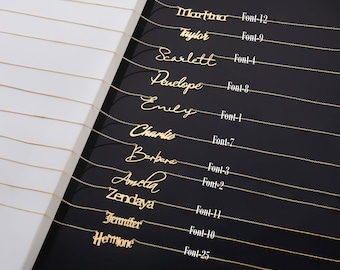 Martina Font-12
Taylor Font-9
Scarlett Font-4
Penelope Font-8
Emily Font-1
Charlie Font-7
Barbara Font-3
Amelia Font-2
Zendaya Font-11
Jennifer Font-10
Hermione Font-25